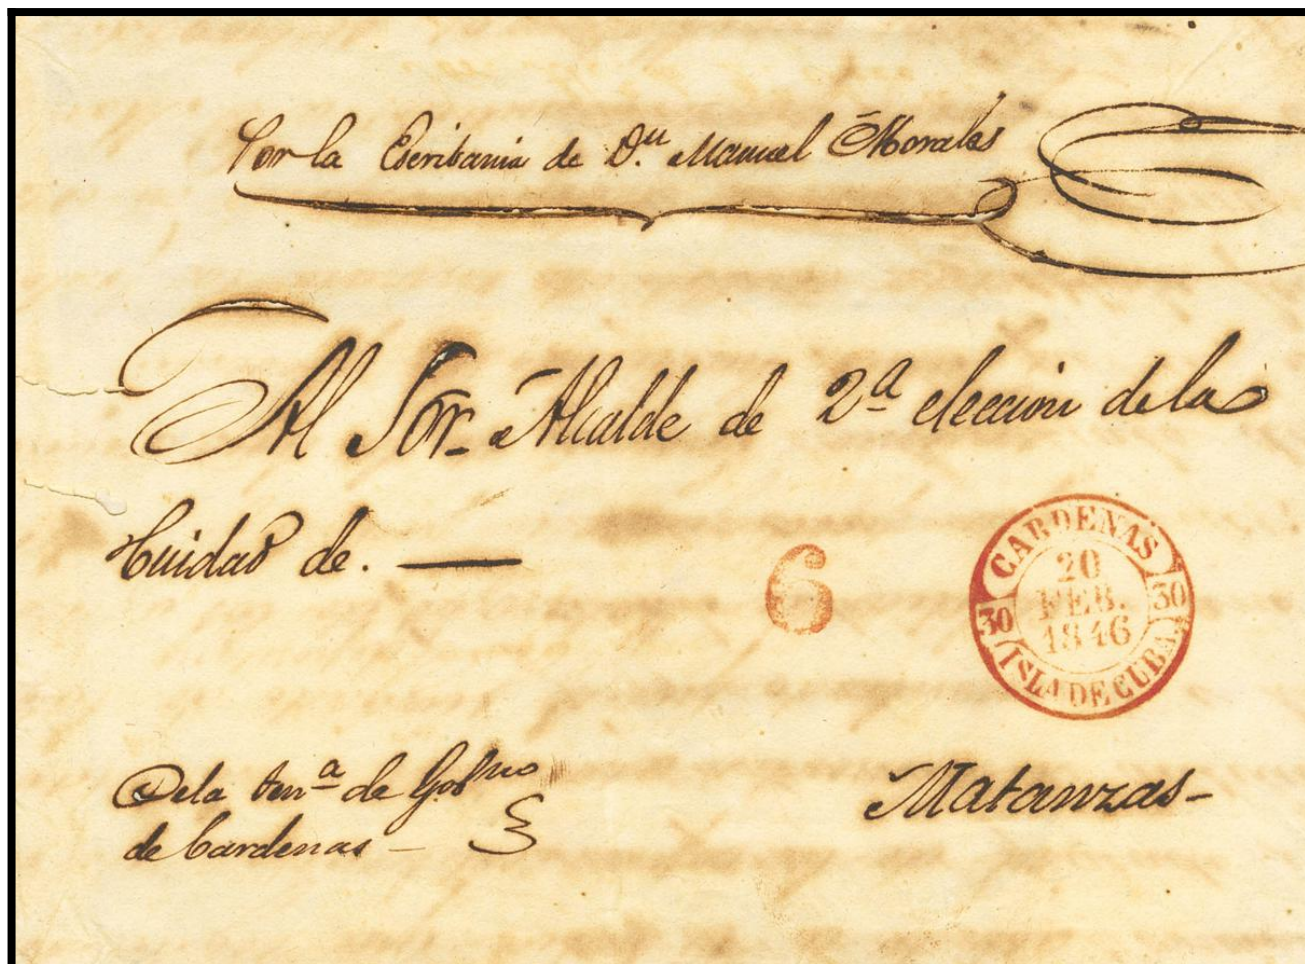 Por la Escribania de Dn. Manuel Morales
Al Sor. Alcalde de 2ª eleccion de la
Cuidad de. —
6
CARDENAS
20
FEB.
1846
30 30
ISLA DE CUBA
De la tenª de Gobno
de Cardenas –
Matanzas–